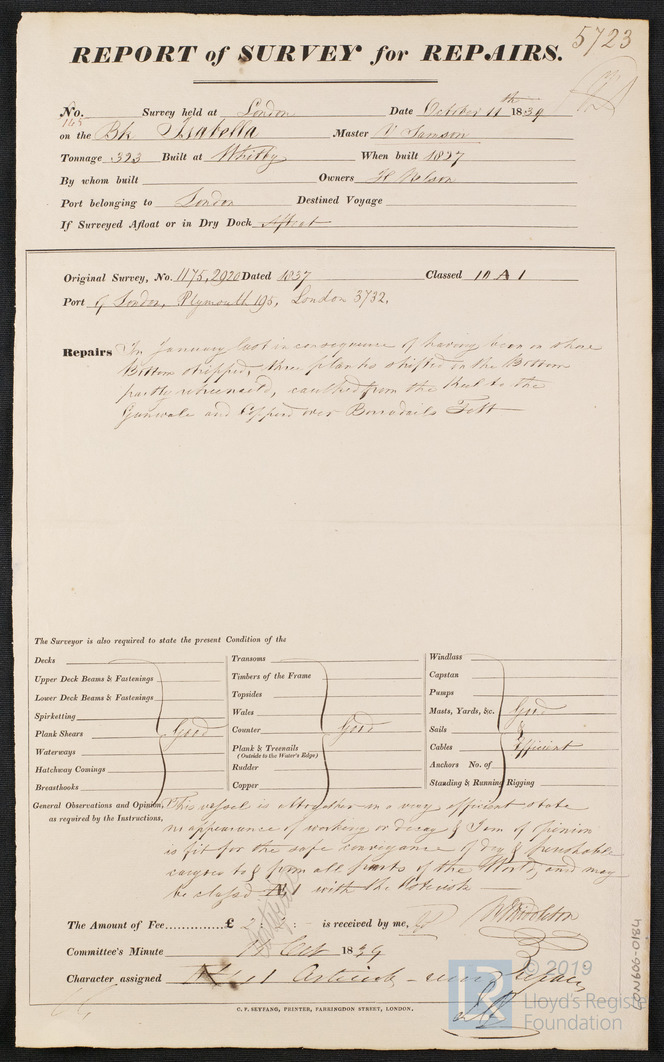 REPORT of SURVEY for REPAIRS. 5723
No. 165 Survey held at London Date October 11th 1839
on the Bk Isabella Master Samson
Tonnage 323 Built at Whitby When built 1827
By whom built Owners H Nelson
Port belonging to London Destined Voyage
If Surveyed Afloat or in Dry Dock Afloat
Original Survey, No. 1175, 2920 Dated 1837 Classed 10 A 1
Port of London, Plymouth 195, London 3732.
Repairs In January last in consequence of having been on shore
Bottom stripped, three planks shifted in the Bottom
partly retreenaild, caulked from the Keel to the
Gunwale and Copperd over Borradails Felt
The Surveyor is also required to state the present Condition of the
Decks
Upper Deck Beams & Fastenings
Lower Deck Beams & Fastenings
Spirketting
Plank Shears Good
Waterways
Hatchway Comings
Breasthooks
Transoms
Timbers of the Frame
Topsides
Wales
Counter Good
Plank & Treenails
(Outside to the Water's Edge)
Rudder
Copper
Windlass
Capstan
Pumps
Masts, Yards, &c. Good
Sails &
Cables Efficient
Anchors No. of
Standing & Running Rigging
General Observations and Opinion, This vessel is altogether in a very efficient state
as required by the Instructions, no appearance of working or decay & I am of opinion
is fit for the safe conveyance of dry & perishable
cargoes to & from all parts of the World, and may
be classed Æ 1 with the Asterisk
The Amount of Fee............... £ 2: 2: - is received by me, W Middleton
Committee's Minute Oct 1839
Character assigned Asterisk - Repairs
C. F. SEYFANG, PRINTER, FARRINGDON STREET, LONDON.
LON606-0184
© 2019
Lloyd's Register
Foundation